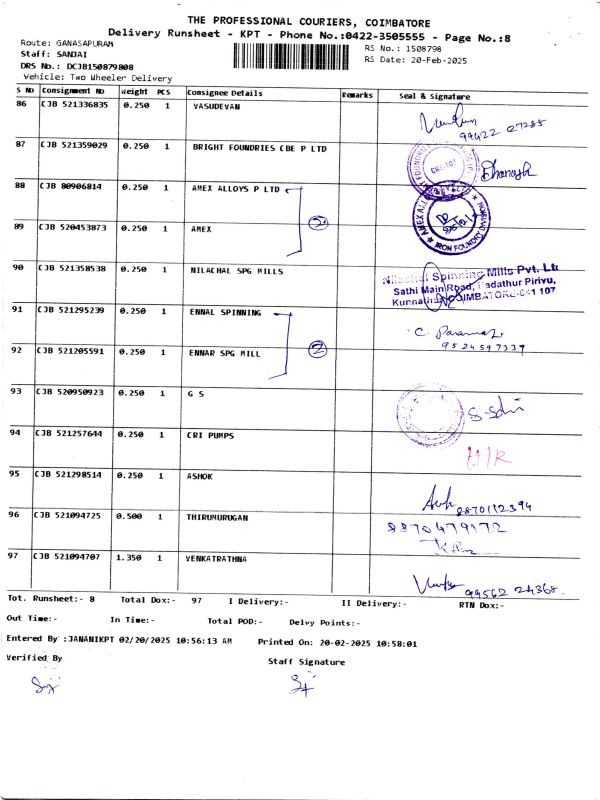 THE PROFESSIONAL COURIERS, COIMBATORE
Delivery Runsheet - KPT - Phone No.:0422-3505555 - Page No.:8
Route: GANASAPURAM
RS No.: 1508798
Staff: SANJAI
RS Date: 20-Feb-2025
DRS No.: DCJB150879808
Vehicle: Two Wheeler Delivery
S No Consignment No Weight PCS Consignee Details Remarks Seal & Signature
86 CJB 521336835 0.250 1 VASUDEVAN
99422 27285
87 CJB 521359029 0.250 1 BRIGHT FOUNDRIES CBE P LTD
Dhanosh
88 CJB 80906814 0.250 1 AMEX ALLOYS P LTD
IRON FOUNDRY DIVISION
89 CJB 520453873 0.250 1 AMEX
2
90 CJB 521358538 0.250 1 NILACHAL SPG MILLS
Nilachal Spinning Mills Pvt. Lt
Sathi Main Road, Kadathur Pirivu,
Kunnathur, COIMBATORE-641 107
91 CJB 521295239 0.250 1 ENNAL SPINNING
9524597339
92 CJB 521205591 0.250 1 ENNAR SPG MILL
2
93 CJB 520950923 0.250 1 G S
94 CJB 521257644 0.250 1 CRI PUMPS
H/R
95 CJB 521298514 0.250 1 ASHOK
8870112394
96 CJB 521094725 0.500 1 THIRUMURUGAN
8870479172
97 CJB 521094707 1.350 1 VENKATRATHNA
99562 24368.
Tot. Runsheet:- 8 Total Dox:- 97 I Delivery:- II Delivery:- RTN Dox:-
Out Time:- In Time:- Total POD:- Delvy Points:-
Entered By :JANANIKPT 02/20/2025 10:56:13 AM Printed On: 20-02-2025 10:58:01
Verified By
Staff Signature